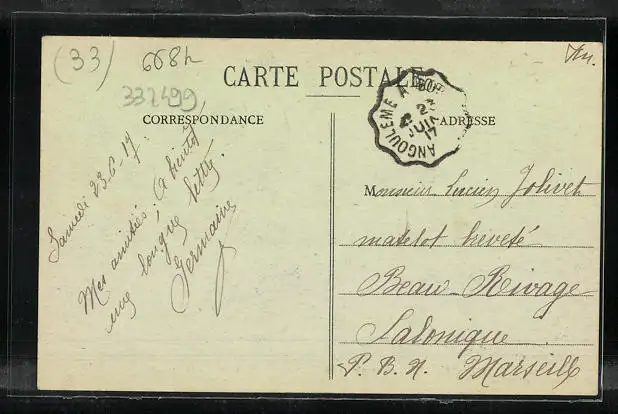 (33)
668h
CARTE POSTALE
332499
CORRESPONDANCE
ADRESSE
ANGOULEME A BOR
23
JUIN
17
Samedi 23-6-17.
Mes amitiés; à bientôt
une longue lettre.
Germaine
Monsieur Lucien Jolivet
matelot breveté
Beau-Rivage
Salonique
P. B. N. Marseille